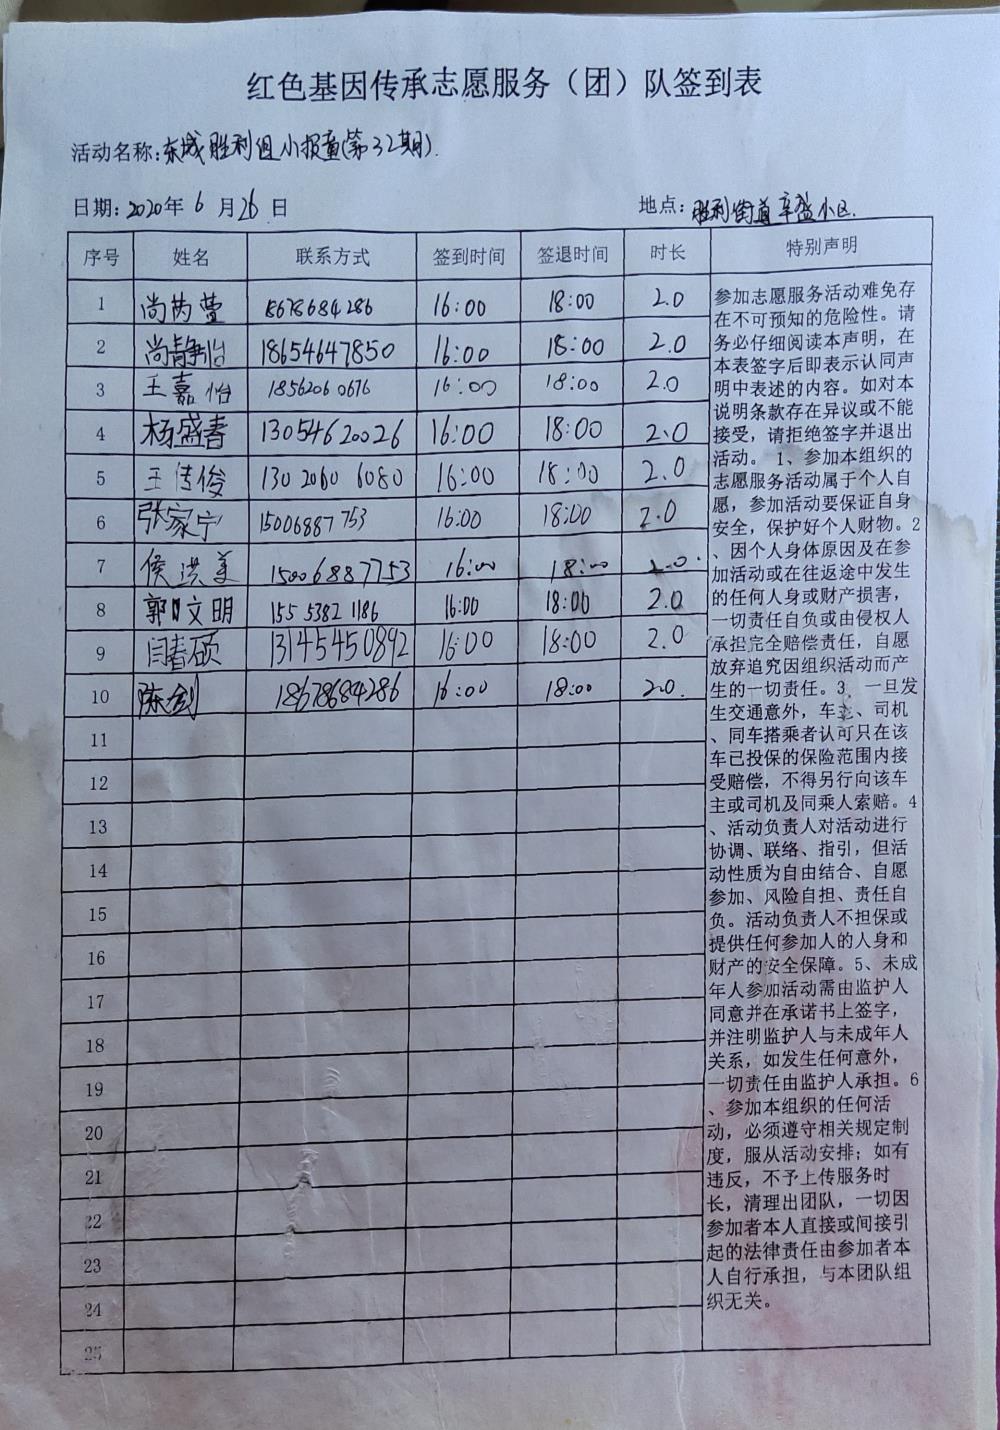 红色基因传承志愿服务（团）队签到表
活动名称:东城胜利组小报童(第32期).
日期:2020年 6 月26 日 地点:胜利街道辛盛小区.
序号 姓名 联系方式 签到时间 签退时间 时长 特别声明
1 尚芮萱 18678684286 16:00 18:00 2.0
2 尚静怡 18654647850 16:00 18:00 2.0
3 王嘉怡 18562060676 16:00 18:00 2.0
4 杨盛春 13054620026 16:00 18:00 2.0
5 王传俊 130 2060 6080 16:00 18:00 2.0
6 张家宁 15006887753 16:00 18:00 2.0
7 侯洪美 15006887753 16:00 18:00 2.0.
8 郭文明 155 5382 1186 16:00 18:00 2.0
9 闫春硕 13145450892 16:00 18:00 2.0
10 陈剑 18678684286 16:00 18:00 2.0.
11
12
13
14
15
16
17
18
19
20
21
22
23
24
25
参加志愿服务活动难免存
在不可预知的危险性。请
务必仔细阅读本声明，在
本表签字后即表示认同声
明中表述的内容。如对本
说明条款存在异议或不能
接受，请拒绝签字并退出
活动。 1、参加本组织的
志愿服务活动属于个人自
愿，参加活动要保证自身
安全，保护好个人财物。2
、因个人身体原因及在参
加活动或在往返途中发生
的任何人身或财产损害，
一切责任自负或由侵权人
承担完全赔偿责任，自愿
放弃追究因组织活动而产
生的一切责任。3、一旦发
生交通意外，车主、司机
、同车搭乘者认可只在该
车已投保的保险范围内接
受赔偿，不得另行向该车
主或司机及同乘人索赔。4
、活动负责人对活动进行
协调、联络、指引，但活
动性质为自由结合、自愿
参加、风险自担、责任自
负。活动负责人不担保或
提供任何参加人的人身和
财产的安全保障。5、未成
年人参加活动需由监护人
同意并在承诺书上签字，
并注明监护人与未成年人
关系，如发生任何意外，
一切责任由监护人承担。6
、参加本组织的任何活
动，必须遵守相关规定制
度，服从活动安排；如有
违反，不予上传服务时
长，清理出团队，一切因
参加者本人直接或间接引
起的法律责任由参加者本
人自行承担，与本团队组
织无关。